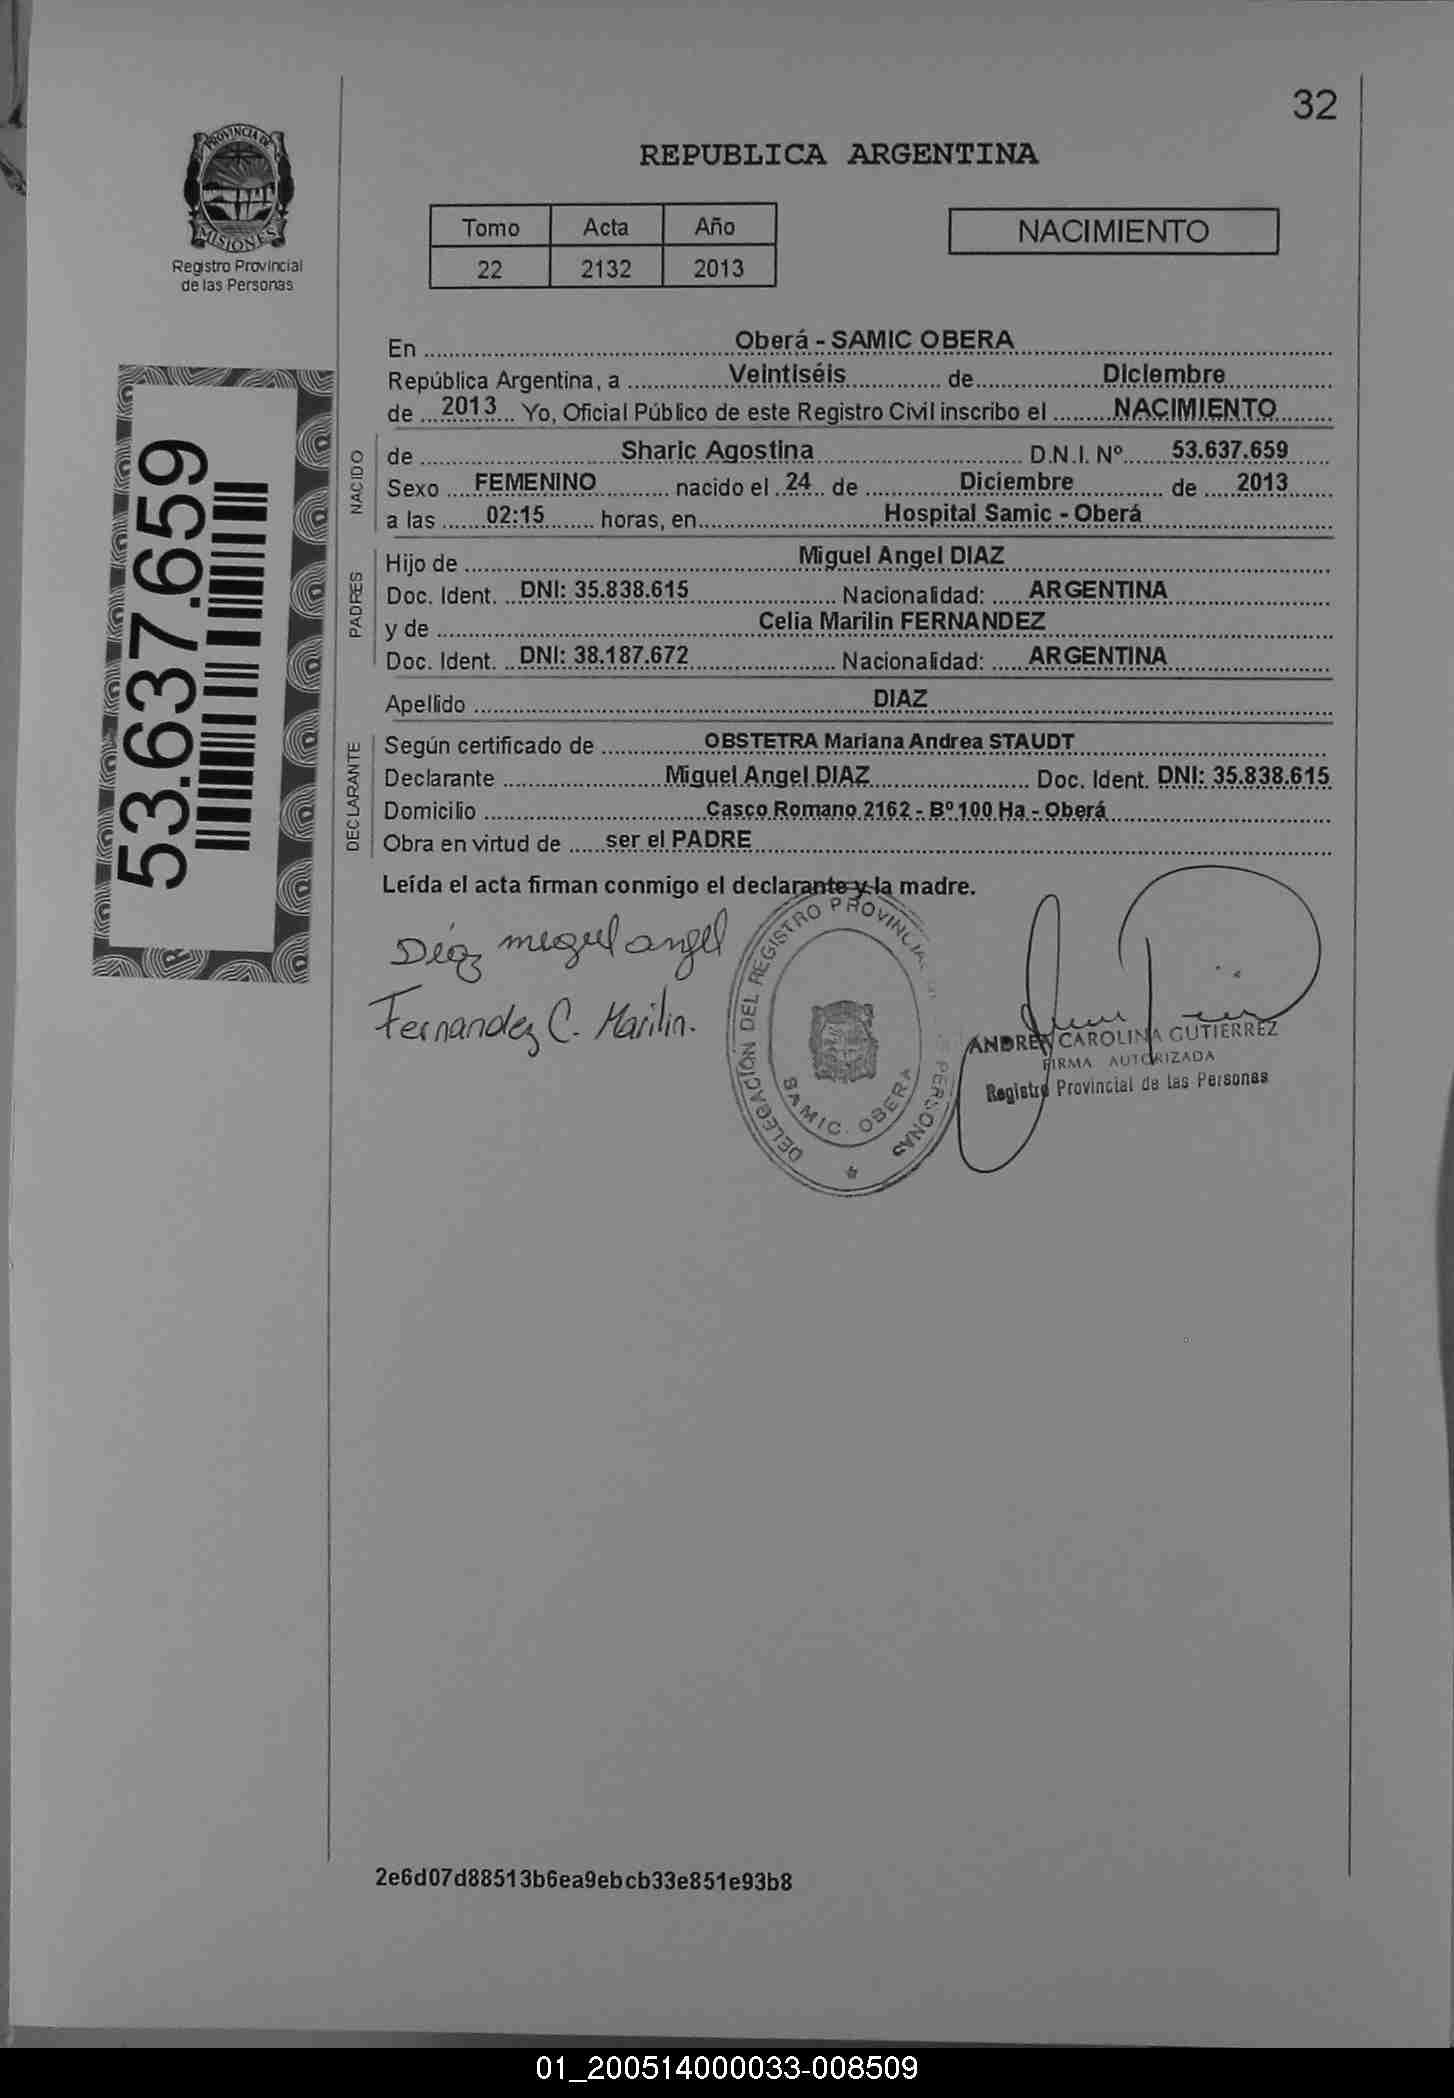 32
PROVINCIA DE
MISIONES
Registro Provincial
de las Personas
REPUBLICA ARGENTINA
Tomo Acta Año
22 2132 2013
NACIMIENTO
53.637.659
En Oberá - SAMIC OBERA
República Argentina, a Veintiséis de Diciembre
de 2013 Yo, Oficial Público de este Registro Civil inscribo el NACIMIENTO
NACIDO
de Sharic Agostina D.N.I. Nº 53.637.659
Sexo FEMENINO nacido el 24 de Diciembre de 2013
a las 02:15 horas, en Hospital Samic - Oberá
PADRES
Hijo de Miguel Angel DIAZ
Doc. Ident. DNI: 35.838.615 Nacionalidad: ARGENTINA
y de Celia Marilin FERNANDEZ
Doc. Ident. DNI: 38.187.672 Nacionalidad: ARGENTINA
Apellido DIAZ
DECLARANTE
Según certificado de OBSTETRA Mariana Andrea STAUDT
Declarante Miguel Angel DIAZ Doc. Ident. DNI: 35.838.615
Domicilio Casco Romano 2162 - Bº 100 Ha - Oberá
Obra en virtud de ser el PADRE
Leída el acta firman conmigo el declarante y la madre.
Diaz miguel angel
Fernandez C. Marilin.
DELEGACIÓN DEL REGISTRO PROVINCIAL PERSONAS
SAMIC. OBERA
ANDREA CAROLINA GUTIERREZ
FIRMA AUTORIZADA
Registro Provincial de las Personas
2e6d07d88513b6ea9ebcb33e851e93b8
01_200514000033-008509